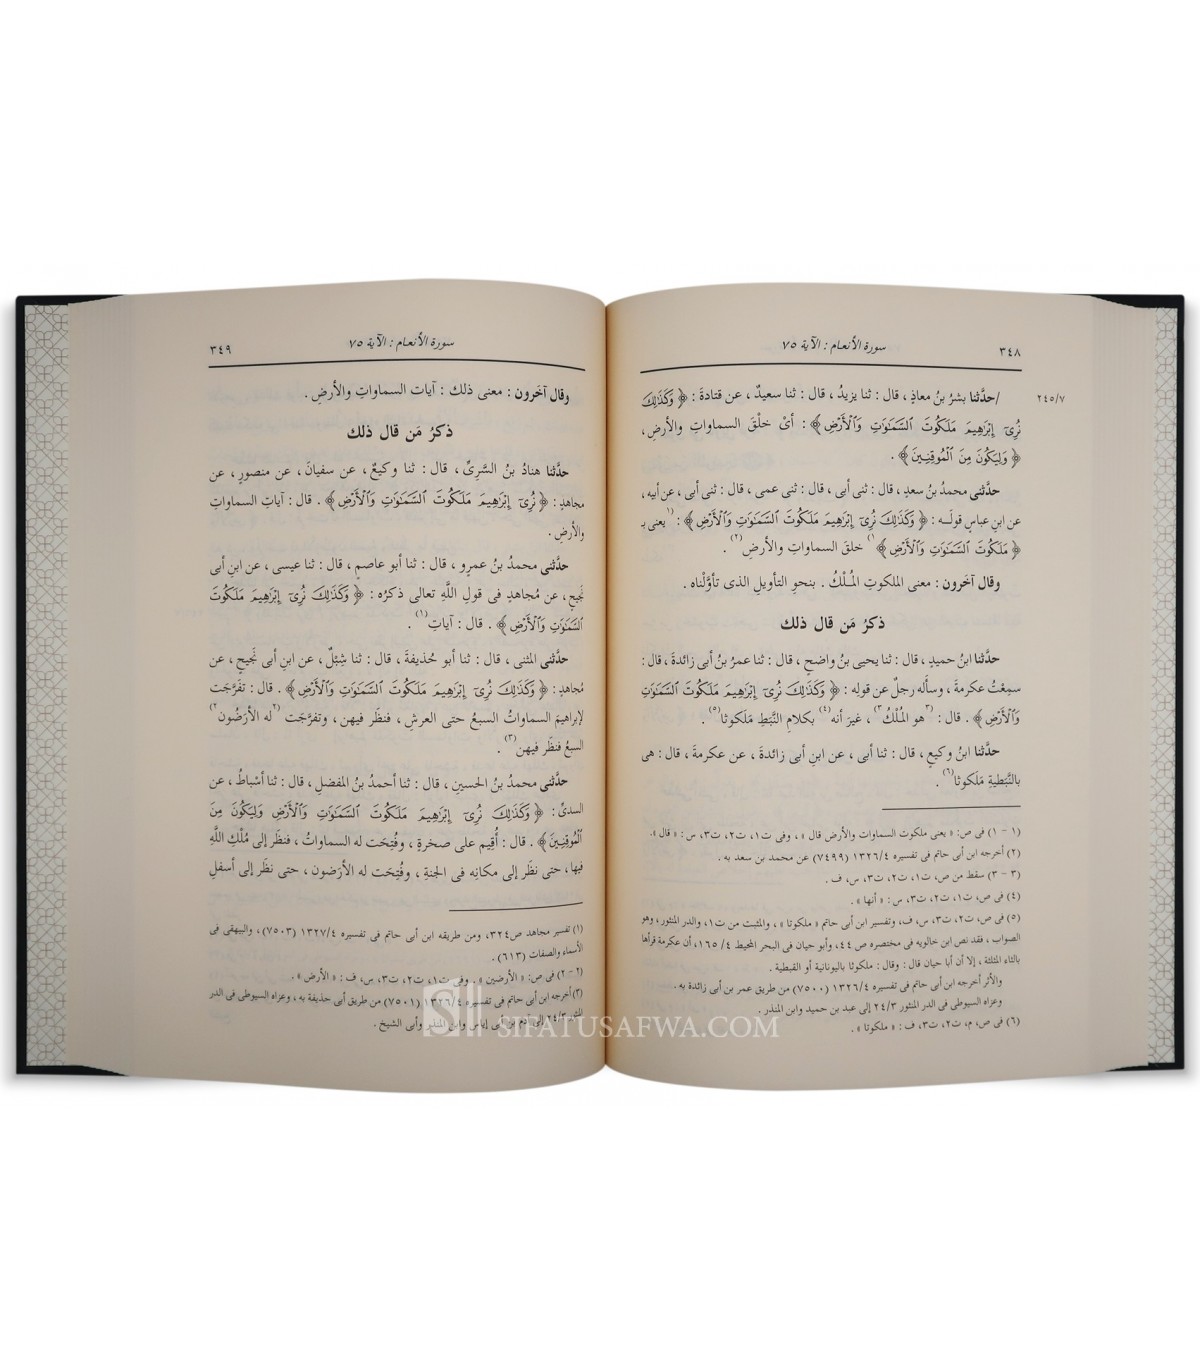 ٣٤٨
سورة الأنعام : الآية ٧٥
٢٤٥/٧
/حدَّثنا بشرُ بنُ معاذٍ ، قال : ثنا يزيدُ ، قال : ثنا سعيدٌ ، عن قتادةَ : ﴿ وَكَذَٰلِكَ
نُرِىٓ إِبْرَٰهِيمَ مَلَكُوتَ ٱلسَّمَٰوَٰتِ وَٱلْأَرْضِ ﴾ : أىْ خلْقَ السماواتِ والأرضِ ،
﴿ وَلِيَكُونَ مِنَ ٱلْمُوقِنِينَ ﴾ .
حدَّثنى محمدُ بنُ سعدٍ ، قال : ثنى أبى ، قال : ثنى عمى ، قال : ثنى أبى ، عن أبيه ،
عن ابنِ عباسٍ قولَـه : ﴿ وَكَذَٰلِكَ نُرِىٓ إِبْرَٰهِيمَ مَلَكُوتَ ٱلسَّمَٰوَٰتِ وَٱلْأَرْضِ ﴾ : (١يعنى بـ
﴿ مَلَكُوتَ ٱلسَّمَٰوَٰتِ وَٱلْأَرْضِ ﴾١) خلقَ السماواتِ والأرضِ(٢) .
وقال آخرون : معنى الملكوتِ المُلْكُ . بنحوِ التأويلِ الذى تأوَّلْناه .
ذكرُ مَن قال ذلك
حدَّثنا ابنُ حميدٍ ، قال : ثنا يحيى بنُ واضحٍ ، قال : ثنا عمرُ بنُ أبى زائدةَ ، قال :
سمِعْتُ عكرمةَ ، وسأَله رجلٌ عن قولِه : ﴿ وَكَذَٰلِكَ نُرِىٓ إِبْرَٰهِيمَ مَلَكُوتَ ٱلسَّمَٰوَٰتِ
وَٱلْأَرْضِ ﴾ . قال : (٣هو المُلْكُ٣) ، غيرَ أنه(٤) بكلامِ النَّبَطِ مَلَكوثا(٥) .
حدَّثنا ابنُ وكيعٍ ، قال : ثنا أبى ، عن ابنِ أبى زائدةَ ، عن عكرمةَ ، قال : هى
بالنَّبَطيةِ مَلَكوثا(٦) .
(١ - ١) فى ص: « يعنى ملكوت السماوات والأرض قال » ، وفى ت١، ت٢، ت٣، س: « قال ».
(٢) أخرجه ابن أبى حاتم فى تفسيره ١٣٢٦/٤ (٧٤٩٩) عن محمد بن سعد به .
(٣ - ٣) سقط من ص، ت١، ت٢، ت٣، س، ف .
(٤) فى ص، ت١، ت٢، ت٣، س : « أنها » .
(٥) فى ص، ت٢، ت٣، س، ف، وتفسير ابن أبى حاتم « ملكوتا » ، والمثبت من ت١، والدر المنثور ، وهو
الصواب ، فقد نص ابن خالويه فى مختصره ص ٤٤، وأبو حيان فى البحر المحيط ٤ / ١٦٥، أن عكرمة قرأها
بالثاء المثلثة ، إلا أن أبا حيان قال : وقال : ملكوثا باليونانية أو القبطية .
والأثر أخرجه ابن أبى حاتم فى تفسيره ١٣٢٦/٤ (٧٥٠٠) من طريق عمر بن أبى زائدة به .
وعزاه السيوطى فى الدر المنثور ٢٤/٣ إلى عبد بن حميد وابن المنذر .
(٦) فى ص، م، ت٢، ت٣، ف : « ملكوتا » .
سورة الأنعام : الآية ٧٥
٣٤٩
وقال آخرون : معنى ذلك : آيات السماواتِ والأرضِ .
ذكرُ مَن قال ذلك
حدَّثنا هنادُ بنُ السَّرِىِّ ، قال : ثنا وكيعٌ ، عن سفيانَ ، عن منصورٍ ، عن
مجاهدٍ : ﴿ نُرِىٓ إِبْرَٰهِيمَ مَلَكُوتَ ٱلسَّمَٰوَٰتِ وَٱلْأَرْضِ ﴾ . قال : آياتِ السماواتِ
والأرضِ .
حدَّثنى محمدُ بنُ عمرٍو ، قال : ثنا أبو عاصمٍ ، قال : ثنا عيسى ، عن ابنِ أبى
نَجيحٍ ، عن مُجاهدٍ فى قولِ اللَّهِ تعالى ذكرُه : ﴿ وَكَذَٰلِكَ نُرِىٓ إِبْرَٰهِيمَ مَلَكُوتَ
ٱلسَّمَٰوَٰتِ وَٱلْأَرْضِ ﴾ . قال : آياتِ(١) .
حدَّثنى المثنى ، قال : ثنا أبو حُذيفةَ ، قال : ثنا شِبْلٌ ، عن ابنِ أبى نَجيحٍ ، عن
مُجاهدٍ : ﴿ وَكَذَٰلِكَ نُرِىٓ إِبْرَٰهِيمَ مَلَكُوتَ ٱلسَّمَٰوَٰتِ وَٱلْأَرْضِ ﴾ . قال : تفَرَّجَت
لإبراهيمَ السماواتُ السبعُ حتى العرشِ ، فنظَر فيهن ، وتفرَّجَت (٢له الأرَضُون٢)
السبعُ فنظَر فيهن(٣) .
حدَّثنى محمدُ بنُ الحسينِ ، قال : ثنا أحمدُ بنُ المفضلِ ، قال : ثنا أَسْباطُ ، عن
السدىِّ : ﴿ وَكَذَٰلِكَ نُرِىٓ إِبْرَٰهِيمَ مَلَكُوتَ ٱلسَّمَٰوَٰتِ وَٱلْأَرْضِ وَلِيَكُونَ مِنَ
ٱلْمُوقِنِينَ ﴾ . قال : أُقِيم على صخرةٍ ، وفُتِحَت له السماواتُ ، فنظَر إلى مُلْكِ اللَّهِ
فيها ، حتى نظَر إلى مكانِه فى الجنةِ ، وفُتِحَت له الأرَضون ، حتى نظَر إلى أسفلِ
(١) تفسير مجاهد ص٣٢٤، ومن طريقه ابن أبى حاتم فى تفسيره ١٣٢٧/٤ (٧٥٠٣)، والبيهقى فى
الأسماء والصفات (٦١٣) .
(٢ - ٢) فى ص: « الأرضين » . وفى ت١، ت٢، ت٣، س، ف: « الأرض » .
(٣) أخرجه ابن أبى حاتم فى تفسيره ١٣٢٦/٤ (٧٥٠١) من طريق أبى حذيفة به ، وعزاه السيوطى فى الدر
المنثور ٢٤/٣ إلى آدم بن أبى إياس وابن المنذر وأبى الشيخ .
SIFATUSAFWA.COM